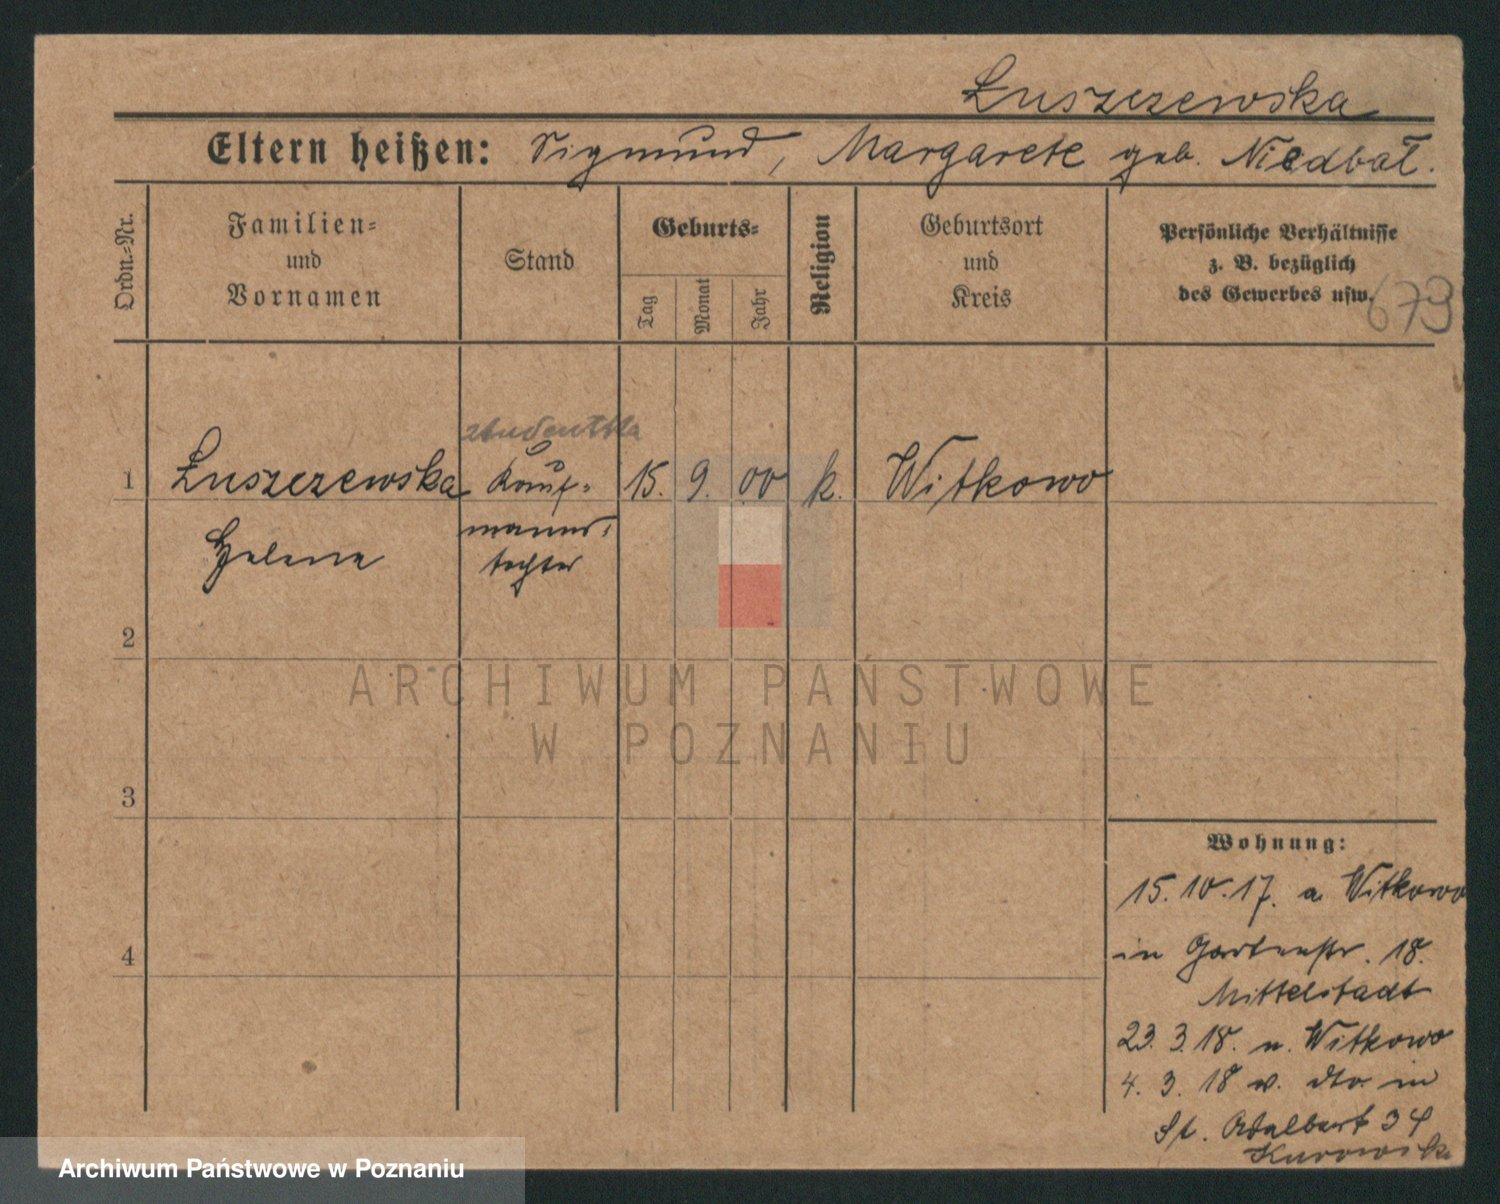 Łuszczewska
Eltern heißen: Sigmund, Margarete geb. Niedbał.
Ordn.-Nr.
Familien-
und
Vornamen
Stand
Geburts-
Tag
Monat
Jahr
Religion
Geburtsort
und
Kreis
Persönliche Verhältnisse
z. B. bezüglich
des Gewerbes usw.
679
studentka
1 Łuszczewska Kauf- 15. 9. 00 k. Witkowo
Helena
manns-
tochter
2
3
4
Wohnung:
15. 10. 17. a Witkowo
in Gartenstr. 18.
Mittelstadt
23. 3. 18. n. Witkowo
4. 3. 18 v. dto. in
St. Adalbert 34
Kurowska
ARCHIWUM PAŃSTWOWE
W POZNANIU
Archiwum Państwowe w Poznaniu